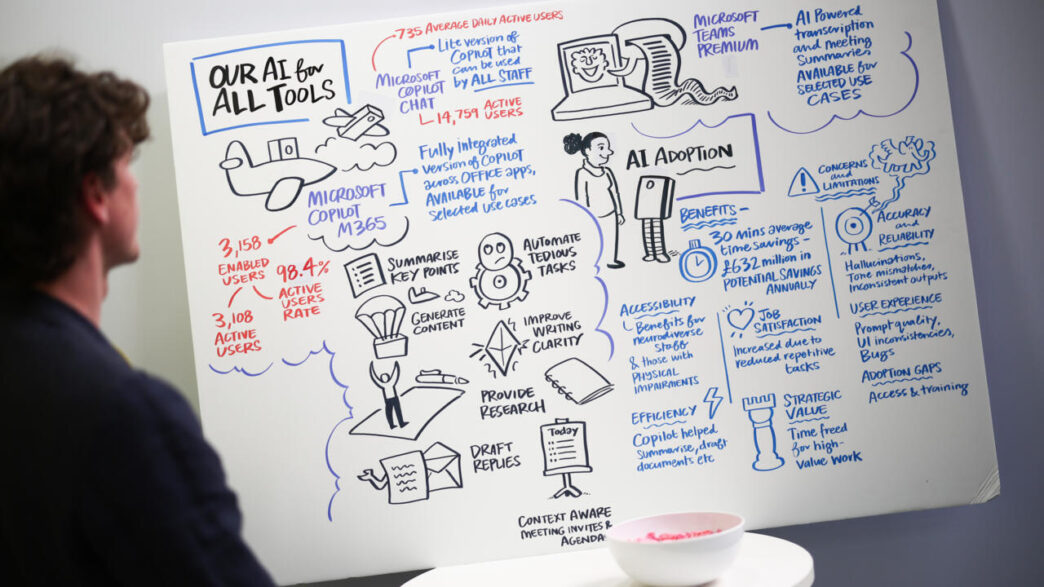 OUR AI for
ALL TOOLS
735 AVERAGE DAILY ACTIVE USERS
MICROSOFT
COPILOT
CHAT
Lite version of
COPILOT that
can be used
by ALL STAFF
14,759 ACTIVE
USERS
MICROSOFT
COPILOT
M365
Fully integrated
version of COPILOT
across OFFICE apps,
AVAILABLE for
selected use cases
3,158
ENABLED
USERS
98.4%
ACTIVE
USERS
RATE
3,108
ACTIVE
USERS
SUMMARISE
KEY POINTS
AUTOMATE
TEDIOUS
TASKS
GENERATE
CONTENT
IMPROVE
WRITING
CLARITY
PROVIDE
RESEARCH
DRAFT
REPLIES
Today
CONTEXT AWARE
MEETING INVITES &
AGENDA
MICROSOFT
TEAMS
PREMIUM
AI Powered
transcription
and meeting
Summaries
AVAILABLE for
SELECTED USE
CASES
AI ADOPTION
BENEFITS –
30 mins average
time savings –
£632 million in
POTENTIAL SAVINGS
ANNUALLY
ACCESSIBILITY
Benefits for
neurodiverse
staff
& those with
PHYSICAL
IMPAIRMENTS
JOB
SATISFACTION
Increased due to
reduced repetitive
tasks
EFFICIENCY
Copilot helped
Summarise, draft
documents etc
STRATEGIC
VALUE
Time freed
for high-
value work
CONCERNS
and
LIMITATIONS
ACCURACY
and
RELIABILITY
Hallucinations,
Tone mismatches,
Inconsistent outputs
USER EXPERIENCE
Prompt quality,
UI inconsistencies,
Bugs
ADOPTION GAPS
Access & training